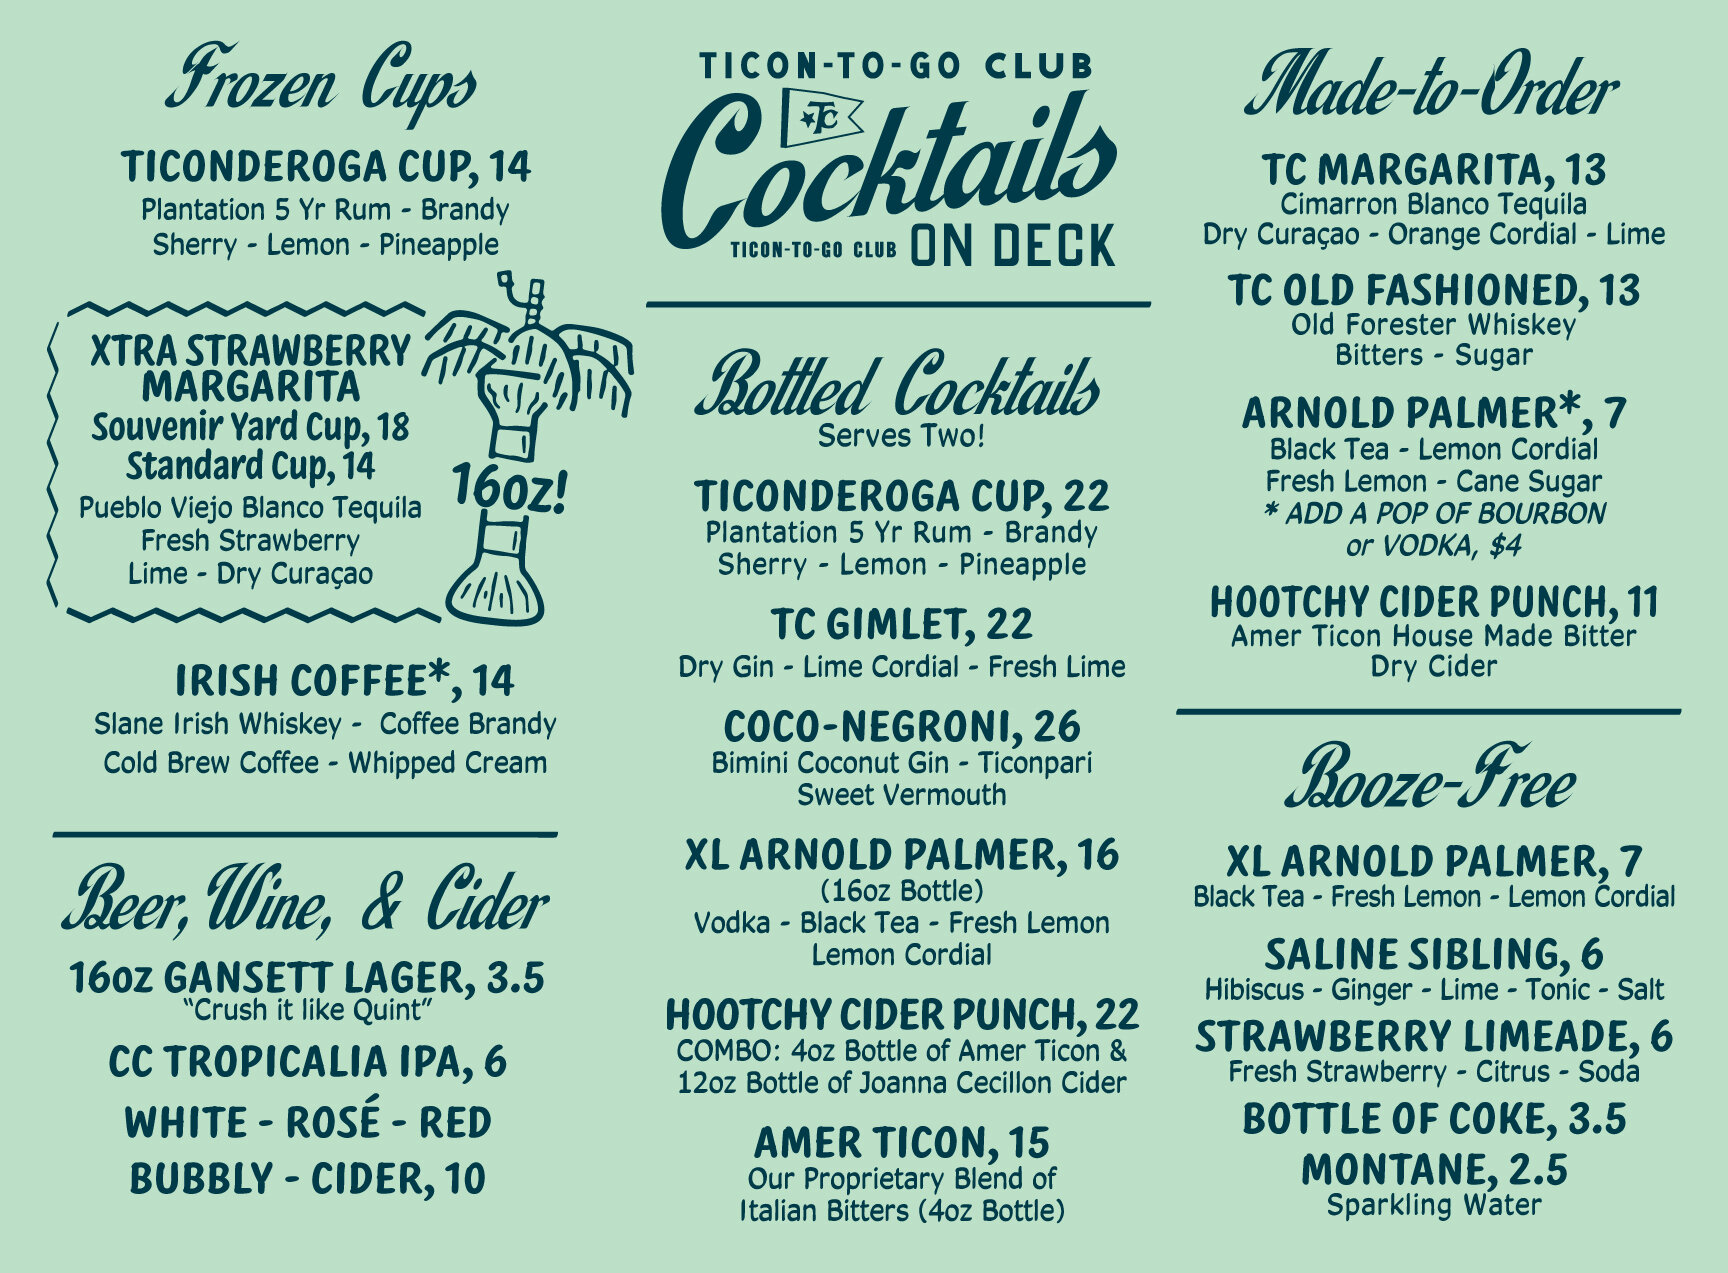 Frozen Cups
TICONDEROGA CUP, 14
Plantation 5 Yr Rum - Brandy
Sherry - Lemon - Pineapple
XTRA STRAWBERRY
MARGARITA
Souvenir Yard Cup, 18
Standard Cup, 14
Pueblo Viejo Blanco Tequila
Fresh Strawberry
Lime - Dry Curaçao
16oz!
IRISH COFFEE*, 14
Slane Irish Whiskey - Coffee Brandy
Cold Brew Coffee - Whipped Cream
Beer, Wine, & Cider
16oz GANSETT LAGER, 3.5
“Crush it like Quint”
CC TROPICALIA IPA, 6
WHITE - ROSÉ - RED
BUBBLY - CIDER, 10
TICON-TO-GO CLUB
TC
Cocktails
TICON-TO-GO CLUB ON DECK
Bottled Cocktails
Serves Two!
TICONDEROGA CUP, 22
Plantation 5 Yr Rum - Brandy
Sherry - Lemon - Pineapple
TC GIMLET, 22
Dry Gin - Lime Cordial - Fresh Lime
COCO-NEGRONI, 26
Bimini Coconut Gin - Ticonpari
Sweet Vermouth
XL ARNOLD PALMER, 16
(16oz Bottle)
Vodka - Black Tea - Fresh Lemon
Lemon Cordial
HOOTCHY CIDER PUNCH, 22
COMBO: 4oz Bottle of Amer Ticon &
12oz Bottle of Joanna Cecillon Cider
AMER TICON, 15
Our Proprietary Blend of
Italian Bitters (4oz Bottle)
Made-to-Order
TC MARGARITA, 13
Cimarron Blanco Tequila
Dry Curaçao - Orange Cordial - Lime
TC OLD FASHIONED, 13
Old Forester Whiskey
Bitters - Sugar
ARNOLD PALMER*, 7
Black Tea - Lemon Cordial
Fresh Lemon - Cane Sugar
* ADD A POP OF BOURBON
or VODKA, $4
HOOTCHY CIDER PUNCH, 11
Amer Ticon House Made Bitter
Dry Cider
Booze-Free
XL ARNOLD PALMER, 7
Black Tea - Fresh Lemon - Lemon Cordial
SALINE SIBLING, 6
Hibiscus - Ginger - Lime - Tonic - Salt
STRAWBERRY LIMEADE, 6
Fresh Strawberry - Citrus - Soda
BOTTLE OF COKE, 3.5
MONTANE, 2.5
Sparkling Water